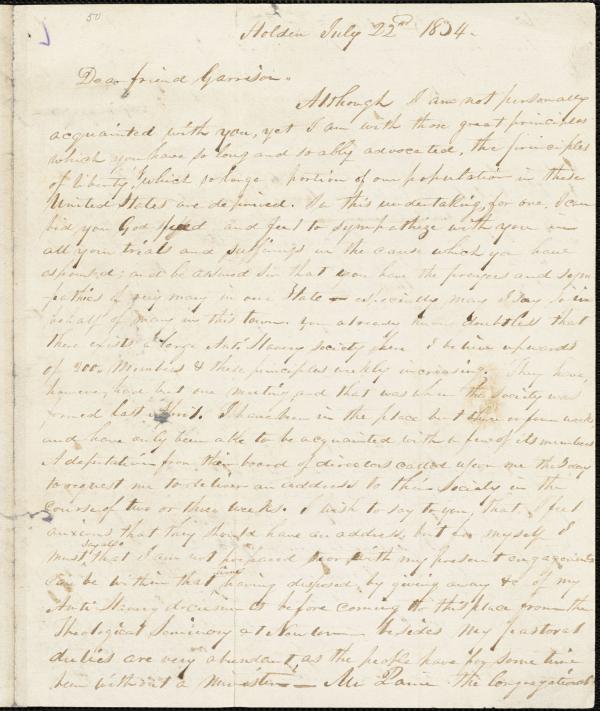 50
Holden July 22nd 1834.
Dear friend Garrison.
Although I am not personally
acquainted with you, yet I am with those great principles
which you have so long and so ably advocated, the principles
of liberty, which so large a portion of our population in these
United States are deprived. In this undertaking, for one, I can
bid you God speed and feel to sympathize with you in
all your trials and sufferings in the cause which you have
espoused; and be assured Sir that you have the prayers and sym
pathies of very many in our State – especially may I say so in
behalf of many in this town. You already know doubtless that
there exists a large Anti Slavery society here. I believe upwards
of 200 Members & these principles weekly increasing. They have,
however, have but one meeting, and that was when the society was
formed last April. I have been in the place but three or four weeks
and have only been able to be acquainted with a few of its members
A deputation from their board of directors called upon me this day
to request me to deliver an address to their Society in the
course of two or three weeks. I wish to say to you, that I feel
anxious that they should have an address, but for myself I
must say that I am not prepared nor with my present engagements
can be within that time having disposed by giving away &c of my
Anti Slavery documents before coming to this place from the
Theological Seminary at Newton – besides my pastoral
duties are very abundant, as the people have for some time
been without a Minister – Mr Paine the Congregational